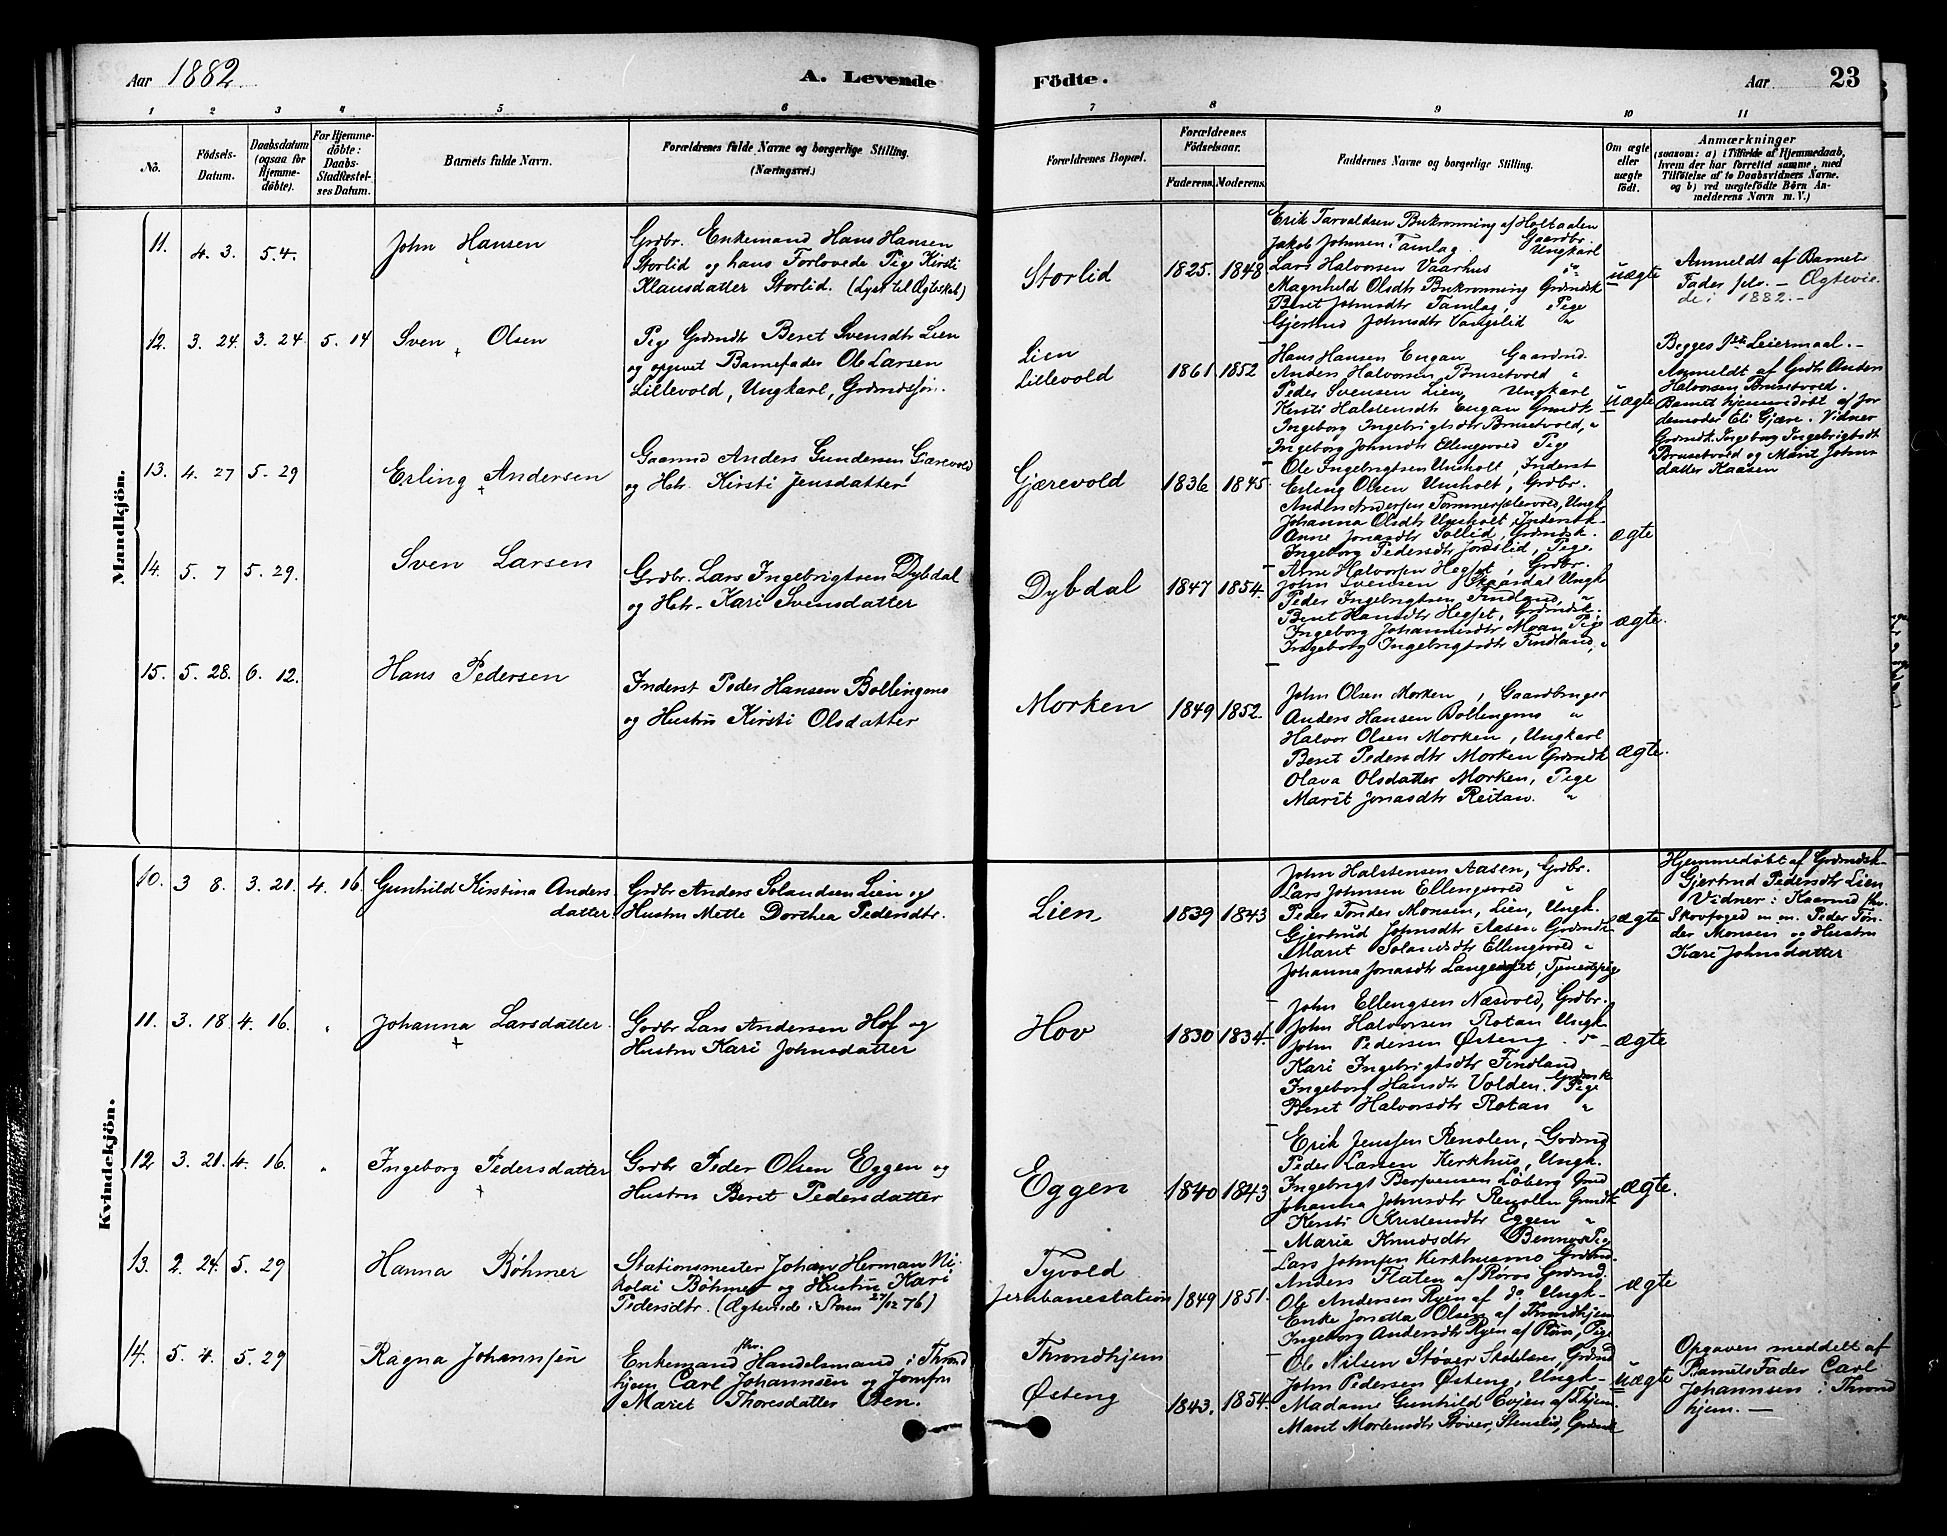 Aar 1882.
A. Levende Födte.
Aar 23
1 2 3 4 5 6 7 8 9 10 11
No.
Födsels-Datum.
Daabsdatum (ogsaa for Hjemme-döbte).
For Hjemme-döbte: Daabs-Stadfæstel-ses Datum.
Barnets fulde Navn.
Forældrenes fulde Navne og borgerlige Stilling.
(Næringsvei.)
Forældrenes Bopæl.
Forældrenes Födselsaar.
Faderens. Moderens.
Faddernes Navne og borgerlige Stilling.
Om ægte eller uægte födt.
Anmærkninger
(saasom: a) i Tilfælde af Hjemmedaab,
hvem der har forrettet samme, med
Tilföielse af to Daabsvidners Navne.
og b) ved uægtefödte Börn An-
melderens Navn m. V.)
Mandkjön.
11. 4. 3. 5. 4. John Hansen
Grdbr. Enkemand Hans Hansen
Storlid og hans Forlovede Pige Kirsti
Klausdatter Storlid. (Lyst til Ægteskab)
Storlid 1825. 1848
Erik Tarvaldsen Bukrønning af Holtaalen
Gaardbr.
Jakob Johnsen Tamlag Ungkarl
Lars Halvorsen Vaarhus do
Magnhild Olsdtr Bukrønning Grdmdsk
Beret Johnsdtr Tamlag, Pige
Gjertrud Johnsdtr Vangslid "
uægte
Anmeldt af Barnets
Fader selv. - Ægtevie-
de i 1882. -
12. 3. 24. 3. 24 5. 14 Sven Olsen
Pige Grdmdt Beret Svensdtr Lien
og opgivet Barnefader Ole Larsen
Lillevold, Ungkarl, Grdmdssøn.
Lien
Lillevold 1861. 1852
Hans Hansen Engan Gaardmd.
Anders Halvorsen Brusetvold "
Peder Svensen Lien, Ungkarl
Kirsti Halstensdtr Engan Grmdk
Ingeborg Ingebrigtsdtr Brusetvold, "
Ingeborg Johnsdtr Ellingsvold Pige
uægte
Begges 1ste Leiermaal. -
Anmeldt af Grdb. Anders
Halvorsen Brusetvold.
Barnet hjemmedøbt af Jor
demoder Eli Gjære. Vidner
Grdmdk. Ingeborg Ingebrigtsdt
Brusetvold og Marit Johns
datter Kaasen
13. 4. 27 5. 29 Erling Andersen
Gaarmd Anders Gundersen Gjærevold
og Hstr. Kirsti Jensdatter
Gjærevold 1836 1845.
Ole Ingebrigtsen Unsholt, Inderst
Erling Olsen Unsholt, Grdbr.
Anders Andersen Tømmeraasvold, Ungk
Johanna Olsdtr Unsholt, Inderstk.
Anne Jonasdtr Sollid, Grdmdsk.
Ingeborg Pedersdtr Jordslid, Pige.
ægte
14. 5. 7 5. 29. Sven Larsen
Grdbr. Lars Ingebrigtsen Dybdal
og Hstr. Kari Svensdatter
Dybdal 1847 1854.
Arne Halvorsen Hegset, Grdbr.
John Svensen Skaardal Ungk
Peder Ingebrigtsen Findland, "
Beret Hansdtr Hegset, Grdmdsk.
Ingeborg Johannesdtr Moan Pige
Ingeborg Ingebrigtsdtr Findland, "
ægte.
15. 5. 28. 6. 12. Hans Pedersen
Inderst Peder Hansen Bollingmo
og Hustru Kirsti Olsdatter
Morken 1849 1852.
John Olsen Morken, Gaardbruger
Anders Hansen Bollengmo "
Halvor Olsen Morken, Ungkarl
Beret Pedersdtr Morken Grdmdk
Olava Olsdatter Morken, Pige
Marit Jonasdtr Reitan. "
ægte.
Kvindekjön.
10. 3 8. 3. 21. 4. 16. Gunhild Kirstina Anders
datter.
Grdbr Anders Solandsen Lien og
Hustru Mette Dorthea Pedersdtr.
Lien 1839 1843
John Halstensen Aasen, Grdbr.
Lars Johnsen Ellingsvold "
Peder Tønder Monsen, Lien, Ungk.
Gjertrud Johnsdtr Aasen Grdmdk
Marit Solandsdtr Ellingsvold "
Johanna Jonasdtr Langeng, Tjenestpige
ægte
Hjemmedøbt af Grdmdsk.
Gjertrud Pedersdtr Lien
Vidner: Kaarmd fhv
Skovfoged m. m. Peder Tøn-
der Monsen og Hustru
Kari Johnsdatter
11. 3. 18. 4. 16. " Johanna Larsdatter
Grdbr Lars Andersen Hof og
Hustru Kari Johnsdatter
Hov 1830 1834.
John Ellingsen Næsvold, Grdbr.
John Halvorsen Rotan Ungk
John Pedersen Østeng. do
Kari Ingebrigtsdtr Findland
Grdmdsk
Ingeborg Hansdtr Volden. Pige
Beret Halvorsdtr Rotan "
ægte
12 3. 21. 4. 16. " Ingeborg Pedersdatter
Grdbr Peder Olsen Eggen og
Hustru Beret Pedersdatter
Eggen 1840 1843
Erik Jenssen Renolen, Grdmd
Peder Larsen Kerkhus, Ungk.
Ingebrigt Berntsensen Løberg Grmd
Johanna Johnsdtr Renolen Grmdk
Kirsti Kristensdtr Eggen "
Marie Knudsdtr Bennos Pig
ægte.
13. 2. 24. 5. 29 Hanna Bøhmer
Stationsmester Johan Herman Ni-
kolai Böhmer og Hustru Kari
Pedersdtr. (Ægteviede i Støren 27/12 76)
Tyvold
Jernbanestation 1849 1851.
Lars Johnsen Kerkhusmo Grdmd.
Anders Flaten af Røros Grdmd.
Ole Andersen Ryen af do Ungk-
Enke Olsen af Throndhjem
Ingeborg Andersdtr Ryen af Røros, Pige
ægte
14. 5. 4. 5. 29 Ragna Johannsen
fhv.
Enkemand Handelsmand i Thrond
hjem Carl Johannsen og Jomfru
Maret Thoresdatter Eten.
Throndhjem
Østeng 1843. 1854.
Ole Nilsen Støver, Grdmd
John Pedersen Østeng, Ungk-
Madame Gunhild Evjen af Thjem.
Marit Mortensdtr Støver, Stenslid, Grdmdk
uægte
Opgaven meddelt af
Barnets Fader Carl
Johannsen i Thrond
hjem. -